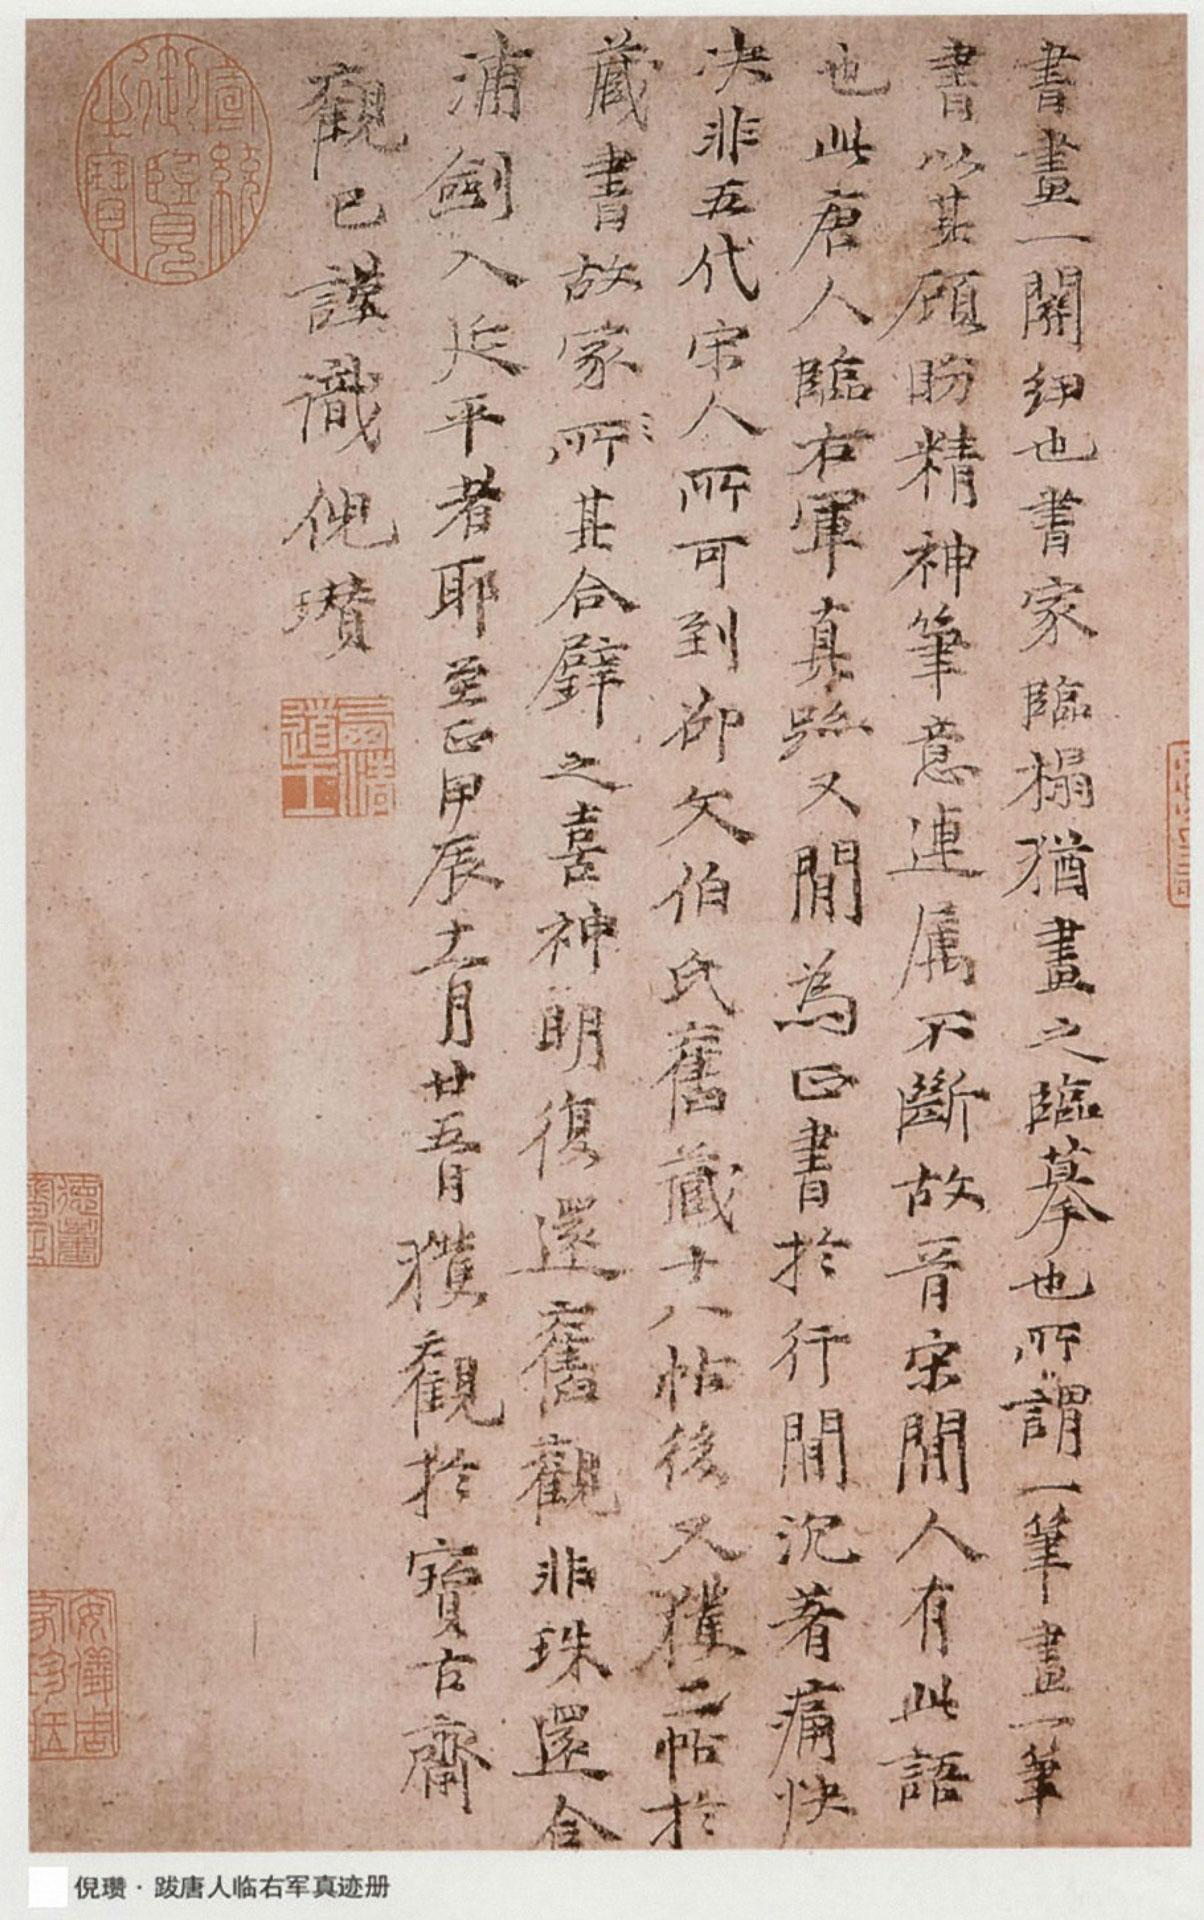 書畫一關紐也書家臨榻猶畫之臨摹也所謂一筆畫一筆
書以其顧盼精神筆意連属不斷故晋宋間人有此語
也此唐人臨右軍真跡又間為正書於行間沉著痛快
决非五代宋人所可到郤文伯氏舊藏十八帖後又獲二帖於
蔵書故家所其合璧之喜神明復還舊觀非珠還合
浦劍入延平者耶至正甲辰十二月廿五日獲觀於寶古齋
觀已謹識倪瓚
宣統御覽之寶
道士
倪瓒·跋唐人临右军真迹册